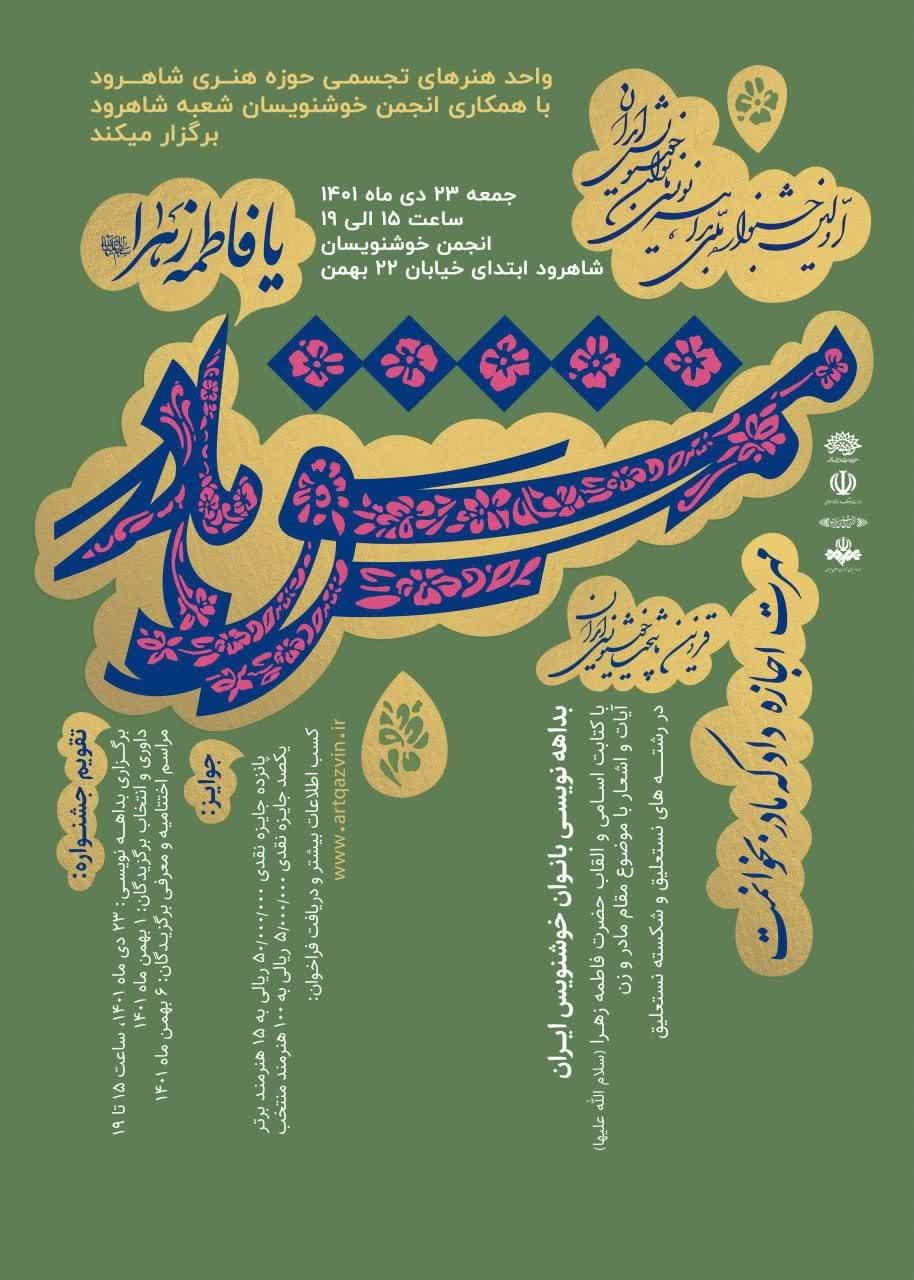 واحد هنرهای تجسمی حوزه هنری شاهرود
با همکاری انجمن خوشنویسان شعبه شاهرود
برگزار میکند
اولین جشنواره ملی
بانوان خوشنویس ایران
جمعه ۲۳ دی ماه ۱۴۰۱
ساعت ۱۵ الی ۱۹
انجمن خوشنویسان
شاهرود ابتدای خیابان ۲۲ بهمن
یا فاطمه زهرا
مشق مادر
قزوین پایتخت خوشنویسی ایران
مهرت اجازه داد که مادر بخوانمت
بداهه نویسی بانوان خوشنویس ایران
با کتابت اسامی و القاب حضرت فاطمه زهرا (سلام الله علیها)
آیات و اشعار با موضوع مقام مادر و زن
در رشته های نستعلیق و شکسته نستعلیق
تقویم جشنواره:
برگزاری بداهه نویسی: ۲۳ دی ماه ۱۴۰۱، ساعت ۱۵ تا ۱۹
داوری و انتخاب برگزیدگان: ۱ بهمن ماه ۱۴۰۱
مراسم اختتامیه و معرفی برگزیدگان: ۶ بهمن ماه ۱۴۰۱
جوایز:
پانزده جایزه نقدی ۵۰/۰۰۰/۰۰۰ ریالی به ۱۵ هنرمند برتر
یکصد جایزه نقدی ۵/۰۰۰/۰۰۰ ریالی به ۱۰۰ هنرمند منتخب
کسب اطلاعات بیشتر و دریافت فراخوان:
www.artqazvin.ir